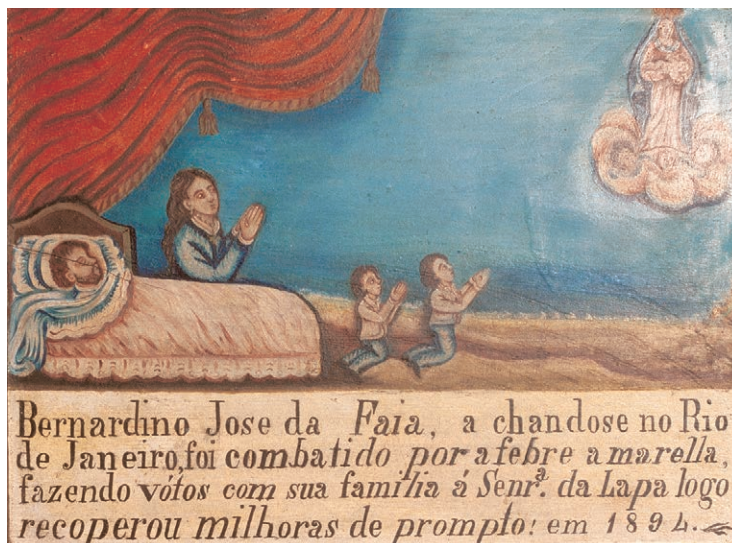 Bernardino Jose da Faia, a chandose no Rio
de Janeiro, foi combatido por a febre amarella,
fazendo vótos com sua familia á Senrª. da Lapa logo
recoperou milhoras de prompto: em 1894.